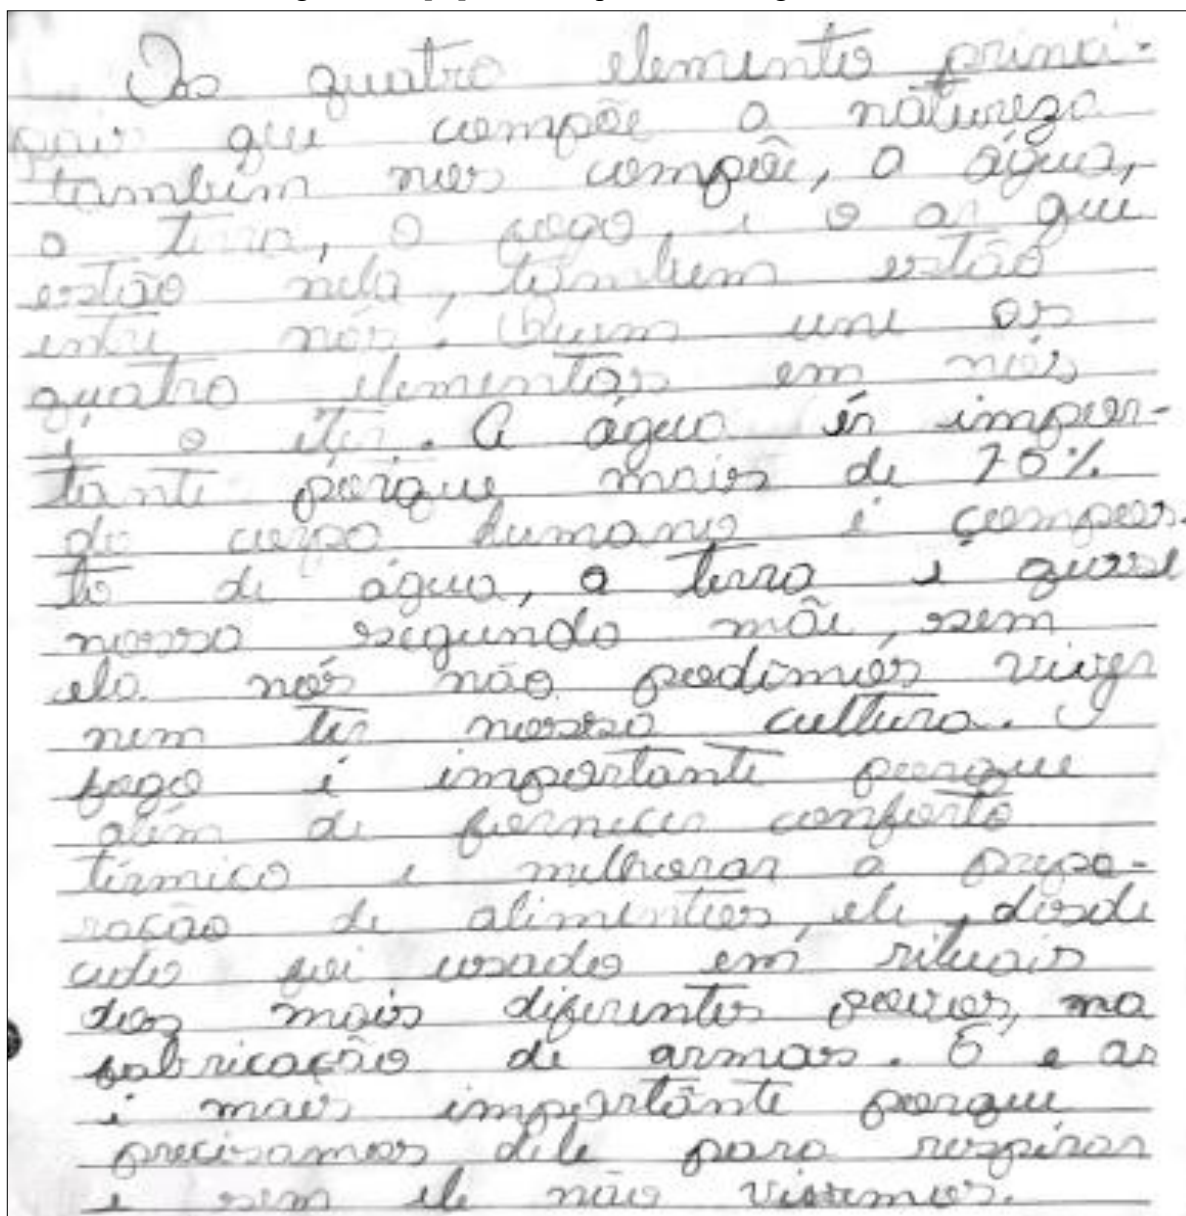 Os quatro elemento princi-
pais que compõe a natureza
também nos compõe, a água,
a terra, o fogo, e o ar que
estão nela, também estão
entre nós. Quem une os
quatro elementos em nós
é o éter. A água é impor-
tante porque mais de 70%
do corpo humano é compos-
to de água, a terra é quase
nossa segunda mãe, sem
ela nós não podemos viver
nem ter nossa cultura. O
fogo é importante porque
além de fornecer conforto
térmico e melhorar a prepa-
ração de alimentos, ele, desde
cedo foi usado em rituais
dos mais diferentes povos, na
fabricação de armas. E o ar
é mais importante porque
precisamos dele para respirar
e sem ele não vivemos.